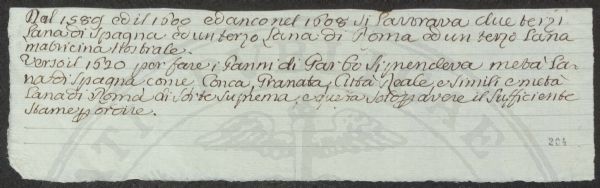 Dal 1589 ed il 1600 ed anco nel 1608 si lavorava due terzi
lana di Spagna ed un terzo lana di Roma od un terzo lana
matricina Nostrale.
Verso il 1620 per fare i Panni di Garbo si prendeva metà la-
na di Spagna come Conca, Granata, Città Reale, e simili e metà
lana di Roma di sorte suprema, e questa solo p avere il sufficiente
stame p ordire.
204